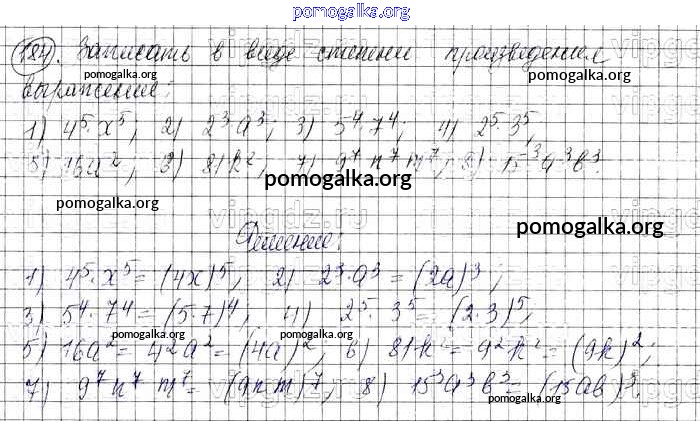 pomogalka.org
184. Записать в виде степени произведения
pomogalka.org
pomogalka.org
выражение:
1) 4⁵·x⁵; 2) 2³·a³; 3) 5⁴·7⁴; 4) 2⁵·3⁵;
5) 16a²; 6) 81k²; 7) 9⁷n⁷m⁷; 8) 15³a³b³.
pomogalka.org
pomogalka.org
vipgdz.ru
pomogalka.org
Решение:
1) 4⁵·x⁵ = (4x)⁵; 2) 2³·a³ = (2a)³;
3) 5⁴·7⁴ = (5·7)⁴; 4) 2⁵·3⁵ = (2·3)⁵;
pomogalka.org
pomogalka.org
5) 16a² = 4²a² = (4a)²; 6) 81k² = 9²k² = (9k)²;
7) 9⁷n⁷m⁷ = (9nm)⁷; 8) 15³a³b³ = (15ab)³.
pomogalka.org
pomogalka.org